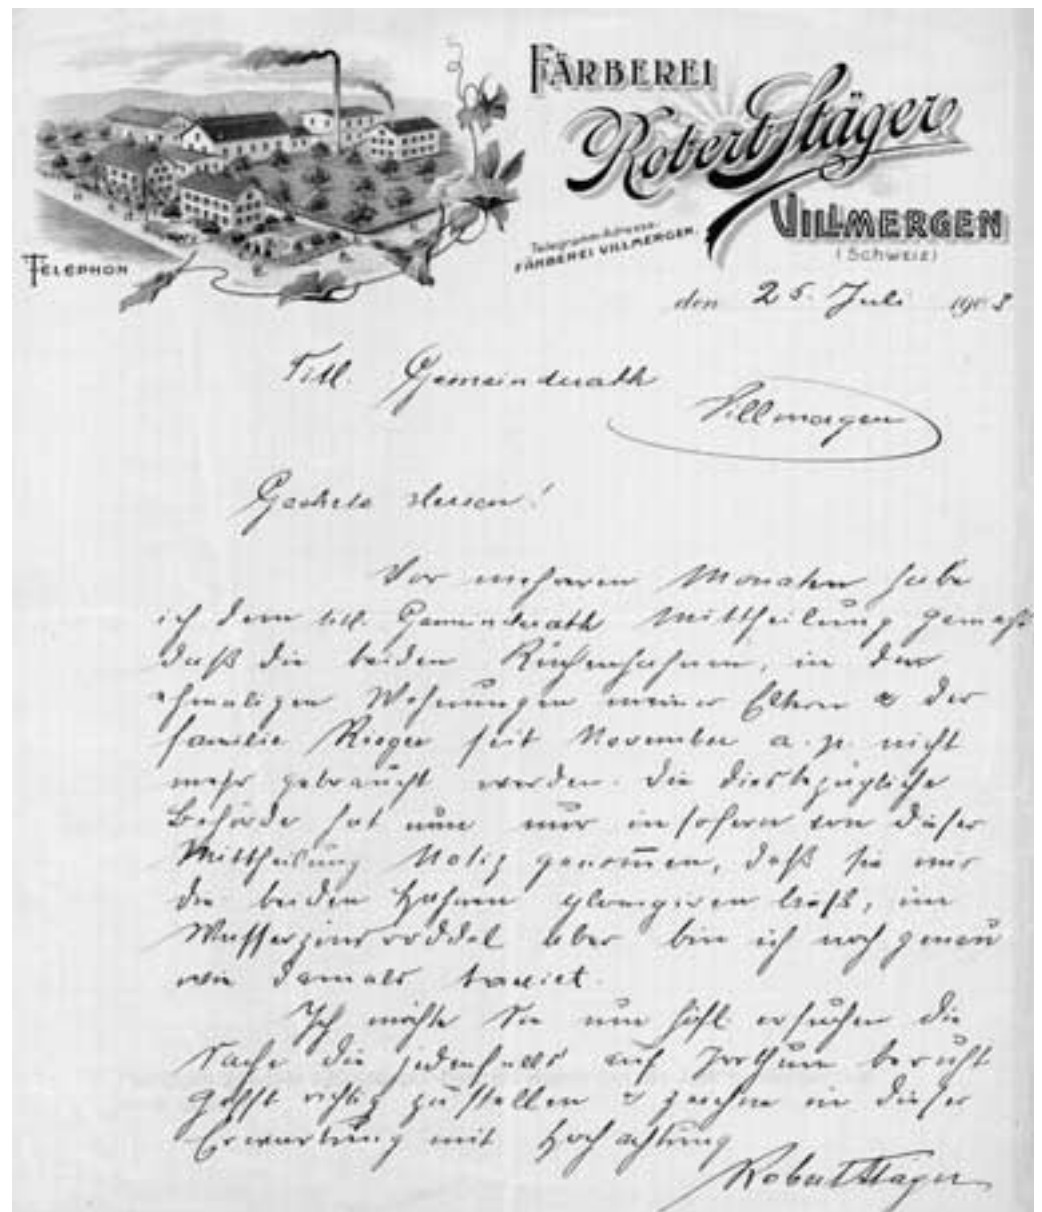 FÄRBEREI
Robert Stäger
VILLMERGEN
(Schweiz)
Telegramm-Adresse:
FÄRBEREI VILLMERGEN.
TELEPHON
den 25. Juli 1903
Titl. Gemeinderath
Villmergen
Geehrte Herren!
Vor mehreren Monaten habe
ich dem titl. Gemeinderath Mittheilung gemacht
daß die beiden Küchenhahnen, in den
ehmaligen Wohnungen meiner Eltern & der
Familie Rieger seit November a. p. nicht
mehr gebraucht werden. Die diesbezügliche
Behörde hat nun nur insofern von dieser
Mittheilung Notiz genom̅en, daß sie mir
die beiden Hahnen plombiren ließ, im
Wasserzinsroddel aber bin ich noch genau
wie damals taxiert.
Ich möchte Sie nun höfl. ersuchen die
Sache die jedenfalls auf Irrthum beruht
gefl. richtig zu stellen & zeichne in dieser
Erwartung mit Hochachtung
Robert Stäger